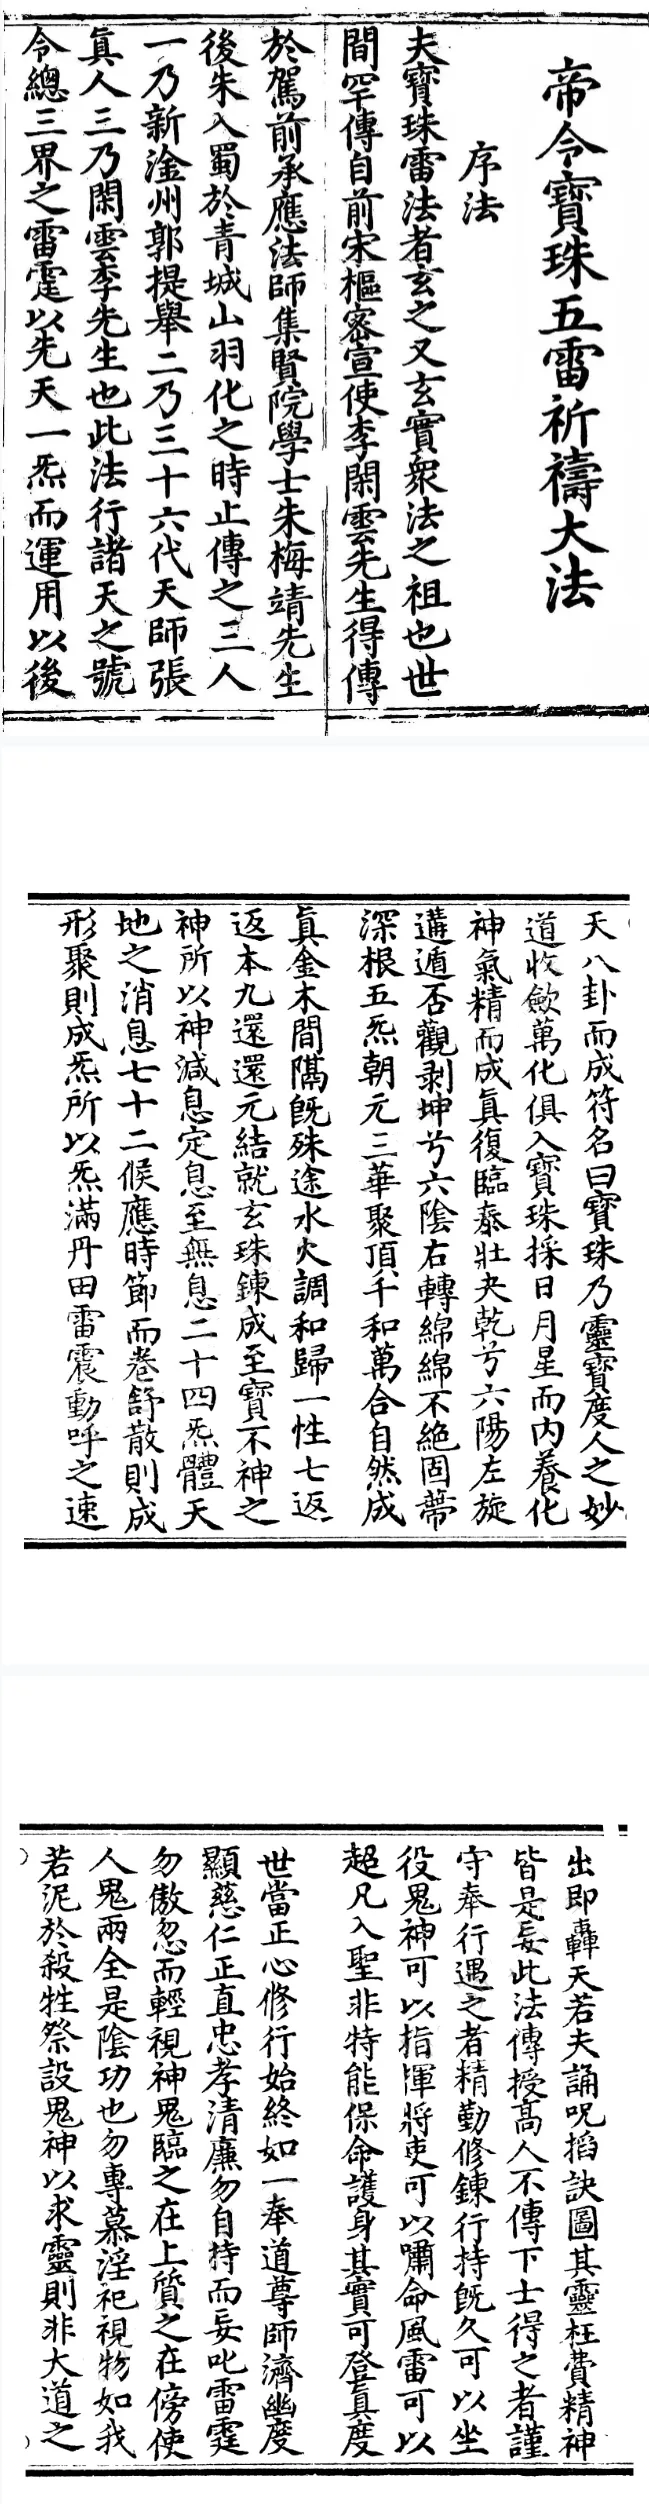 帝令寶珠五雷祈禱大法
序法
夫寶珠雷法者玄之又玄實衆法之祖也世
間罕傳自前宋樞密宣使李閑雲先生得傳
於駕前承應法師集賢院學士朱梅靖先生
後朱入蜀於青城山羽化之時止傳之三人
一乃新淦州郭提舉二乃三十六代天師張
眞人三乃閑雲李先生也此法行諸天之號
令總三界之雷霆以先天一炁而運用以後
天八卦而成符名曰寶珠乃靈寶度人之妙
道收斂萬化俱入寶珠採日月星而內養化
神氣精而成眞復臨泰壯夬乾兮六陽左旋
遘遁否觀剥坤兮六陰右轉綿綿不絶固蔕
深根五炁朝元三華聚頂千和萬合自然成
眞金木間隔旣殊途水火調和歸一性七返
返本九還還元結就玄珠鍊成至寶不神之
神所以神減息定息至無息二十四炁體天
地之消息七十二候應時節而卷舒散則成
形聚則成炁所以炁滿丹田雷震動呼之速
出即轟天若夫誦呪掐訣圖其靈枉費精神
皆是妄此法傳授髙人不傳下士得之者謹
守奉行遇之者精勤修鍊行持旣久可以坐
役鬼神可以指揮將吏可以嘯命風雷可以
超凡入聖非特能保命護身其實可登眞度
世當正心修行始終如一奉道尊師濟幽度
顯慈仁正直忠孝清廉勿自恃而妄叱雷霆
勿傲忽而輕視神鬼臨之在上質之在傍使
人鬼兩全是陰功也勿專慕淫祀視物如我
若泥於殺牲祭設鬼神以求靈則非大道之